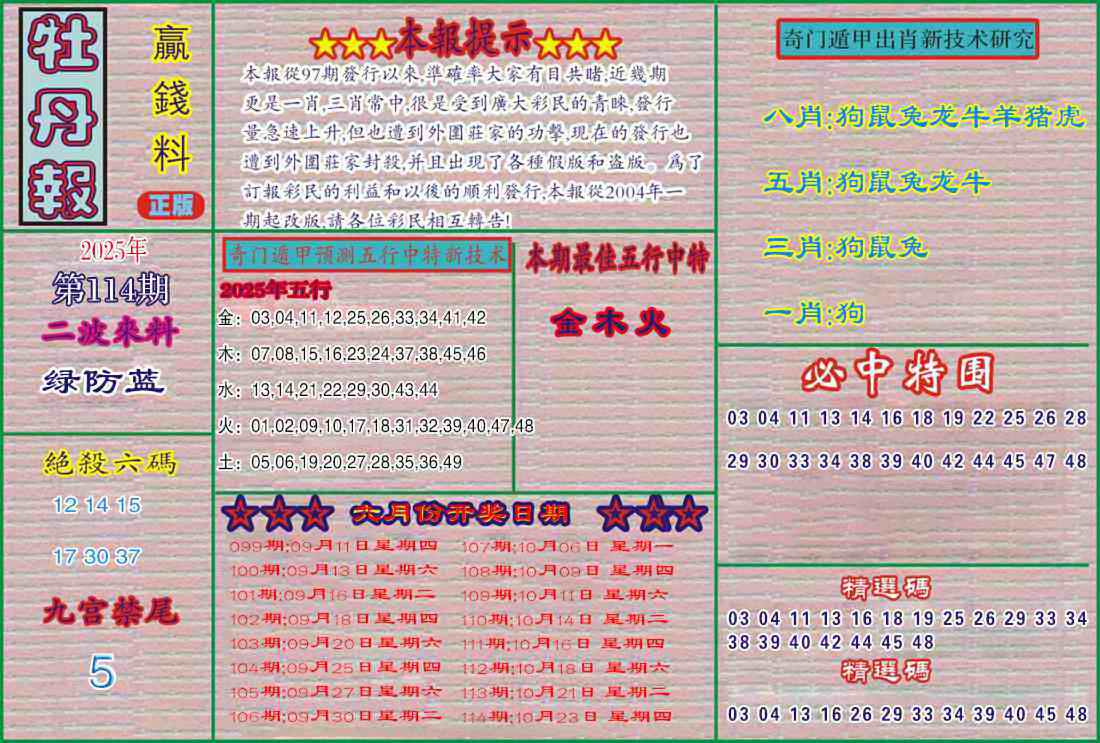 牡丹報
贏錢料
正版
2025年
第114期
二波來料
绿防蓝
絕殺六碼
12 14 15
17 30 37
九宫禁尾
5
★★★本報提示★★★
本報從97期發行以來,準確率大家有目共睹,近幾期
更是一肖,三肖常中,很是受到廣大彩民的青睞,發行
量急速上升,但也遭到外圍莊家的功擊,現在的發行也
遭到外圍莊家封殺,并且出現了各種假版和盗版。爲了
訂報彩民的利益和以後的順利發行,本報從2004年一
期起改版,請各位彩民相互轉告!
奇门遁甲预测五行中特新技术
2025年五行
金：03,04,11,12,25,26,33,34,41,42
木：07,08,15,16,23,24,37,38,45,46
水：13,14,21,22,29,30,43,44
火：01,02,09,10,17,18,31,32,39,40,47,48
土：05,06,19,20,27,28,35,36,49
本期最佳五行中特
金木火
☆☆☆ 六月份开奖日期 ☆☆☆
099期:09月11日星期四
100期:09月13日星期六
101期:09月16日星期二
102期:09月18日星期四
103期:09月20日星期六
104期:09月25日星期四
105期:09月27日星期六
106期:09月30日星期二
107期:10月06日 星期一
108期:10月09日 星期四
109期:10月11日 星期六
110期:10月14日 星期二
111期:10月16日 星期四
112期:10月18日 星期六
113期:10月21日 星期二
114期:10月23日 星期四
奇门遁甲出肖新技术研究
八肖:狗鼠兔龙牛羊猪虎
五肖:狗鼠兔龙牛
三肖:狗鼠兔
一肖:狗
必中特围
03 04 11 13 14 16 18 19 22 25 26 28
29 30 33 34 38 39 40 42 44 45 47 48
精選碼
03 04 11 13 16 18 19 25 26 29 33 34
38 39 40 42 44 45 48
精選碼
03 04 13 16 26 29 33 34 39 40 45 48